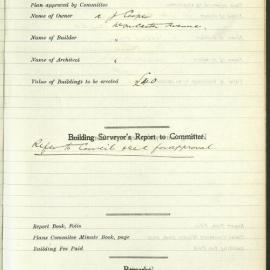 Plan approved by Committee
Name of Owner " J Cooper
Avenue
Name of Builder "
Name of Architect "
Value of Buildings to be erected £40
Building Surveyor's Report to Committee.
Refer to Council for approval
Report Book, Folio
Plans Committee Minute Book, page
Building Fee Paid
Remarks.